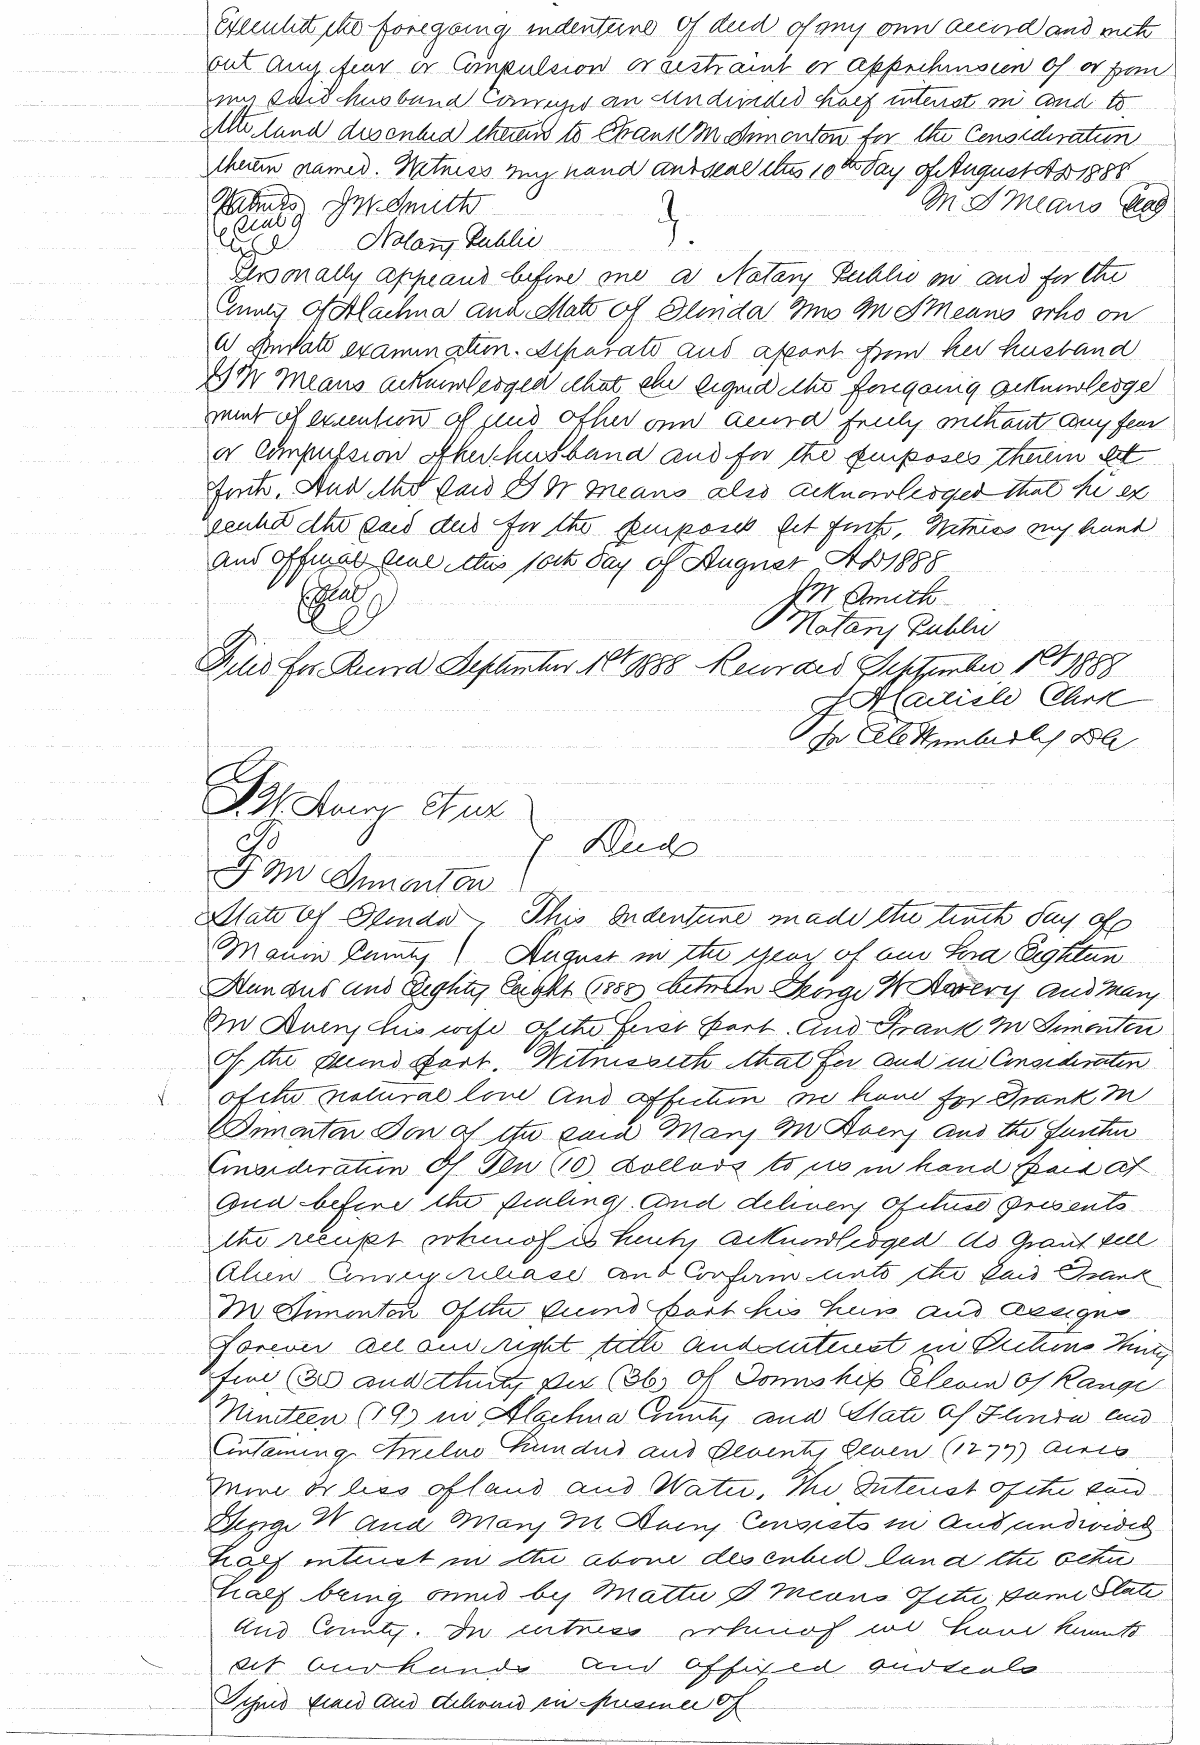 Executed the foregoing indenture of deed of my own accord and with
out any fear or Compulsion or restraint or apprehension of or from
my said husband Conveys an undivided half interest in and to
the land described therein to Frank M Simonton for the Consideration
therein named. Witness my hand and seal this 10th day of August AD 1888
Witness J W Smith M S Means Seal
Seal
Notary Public
Personally appeared before me a Notary Public in and for the
County of Alachua and State of Florida Mrs M S Means who on
a private examination. Separate and apart from her husband
G W Means acknowledged that she signed the foregoing acknowledge
ment of execution of deed of her own accord freely without any fear
or Compulsion of her husband and for the purposes therein set
forth. And the said G W Means also acknowledged that he ex
ecuted the said deed for the purposes set forth. Witness my hand
and official seal this 10th day of August AD 1888
Seal J W Smith
Notary Public
Filed for Record September 1st 1888 Recorded September 1st 1888
J A Carlisle Clerk
DC
G. W. Avery et ux
To } Deed
F M Simonton
State of Florida } This Indenture made the tenth day of
Marion County } August in the year of our Lord Eighteen
Hundred and Eighty Eight (1888) between George W Avery and Mary
M Avery his wife of the first part. and Frank M Simonton
of the second part. Witnesseth that for and in Consideration
of the natural love and affection we have for Frank M
Simonton Son of the said Mary M Avery and the further
Consideration of Ten (10) dollars to us in hand paid at
and before the sealing and delivery of these presents
the receipt whereof is hereby acknowledged do grant sell
alien Convey release and Confirm unto the said Frank
M Simonton of the second part his heirs and assigns
forever all our right title and interest in Sections Thirty
five (35) and thirty six (36) of Township Eleven of Range
Nineteen (19) in Alachua County and State of Florida and
Containing twelve hundred and seventy seven (1277) acres
more or less of land and Water. The Interest of the said
George W and Mary M Avery Consists in and undivided
half interest in the above described land the other
half being owned by Mattie S Means of the same State
and County. In witness whereof we have hereunto
set our hands and affixed our seals
Signed sealed and delivered in presence of